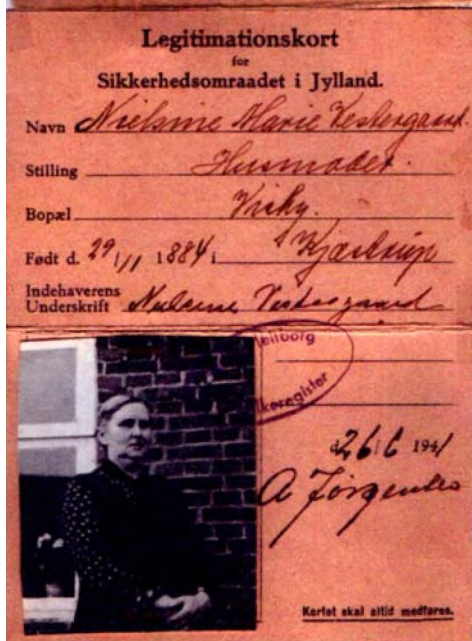 Legitimationskort
for
Sikkerhedsomraadet i Jylland.
Navn Nielsine Marie Vestergaard.
Stilling Husmoder.
Bopæl Visby.
Født d. 29/11 1884 i Kjærstrup
Indehaverens
Underskrift Nielsine Vestergaard
keregister
d. 26/6 1941
A Jørgensen
Kortet skal altid medføres.